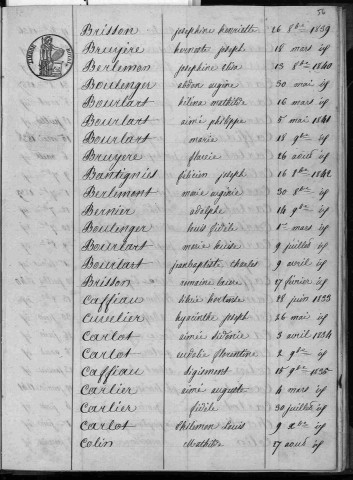 56
Brisson josephine henriette 26 8bre 1839
Bruyère hernate joseph 18 mars id
Berlemon josephine elisa 13 8bre 1840
Boulenger abdon eugène 30 mai id
Bourlart héléna mathilde 16 mars id
Bourlart aimé philippe 5 mai 1841
Bourlart marie 18 9bre id
Bruyère flavie 26 août id
Bantignies félicien joseph 16 8bre 1842
Berlemont marie virginie 30 8bre id
Bernier adolphe 14 9bre id
Boulenger louis fidèle 1er mars id
Bourlart marie louise 9 juillet id
Bourlart jean baptiste charles 9 avril id
Brisson romaine laure 27 février id
Caffiau hortense 28 juin 1833
Cuvelier hyacinthe joseph 26 mai id
Carlot aimée sidonie 3 avril 1834
Carlot eudoxie florentine 2 9bre id
Caffiau 15 9bre 1835
Carlier aimé auguste 4 mars id
Carlier fidèle 30 juillet id
Carlot Philémon louis 9 2bre id
Colin Mathilde 27 août id